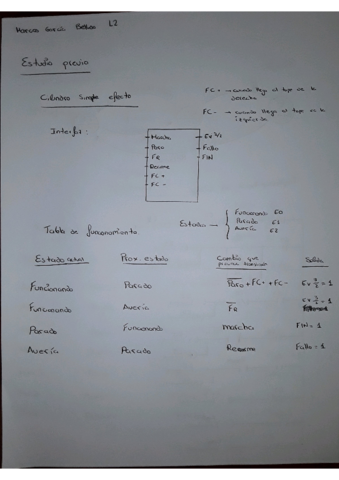 Marcos García Bellido L2
Estudio previo
Cilindro simple efecto
FC+ → cuando llega al tope de la derecha
FC- → cuando llega al tope de la izquierda
Interfaz:
Marcha
Paro
FR
Rearme
FC+
FC-
Ex 3/2
Fallo
FIN
Tabla de funcionamiento
Estado →
Funcionando E0
Parado E1
Avería E2
Estado actual Prox. estado Cambio que Salida
Funcionando Parado Paro + FC+ + FC- Ex 3/2 = 1
Funcionando Avería FR Ex 3/2 = 1
Parado Funcionando marcha FIN = 1
Avería Parado Rearme Fallo = 1